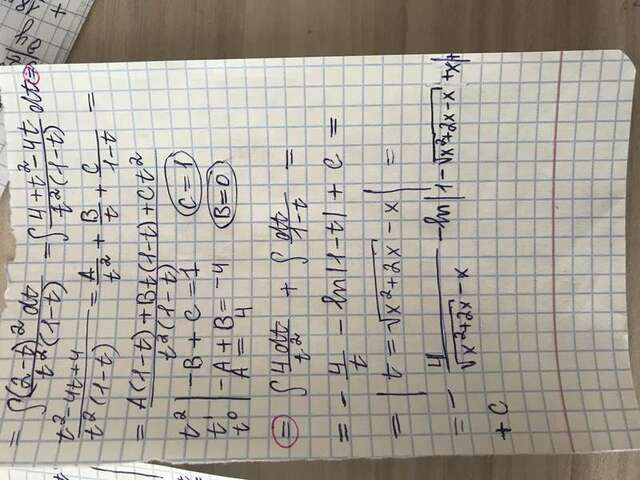 = ∫ (2-t)² dt / t²(1-t) = ∫ 4+t²-4t / t²(1-t) dt =
t²-4t+4 / t²(1-t) = A/t² + B/t + C/1-t =
= A(1-t)+Bt(1-t)+Ct² / t²(1-t)
t² | -B + C = 1 C = 1
t¹ | -A + B = -4 B = 0
t⁰ | A = 4
= ∫ 4dt/t² + ∫ dt/1-t =
= - 4/t - ln|1-t| + C =
= | t = √x²+2x - x | =
= - 4/√x²+2x - x - ln|1-√x²+2x-x +x|+
+ C